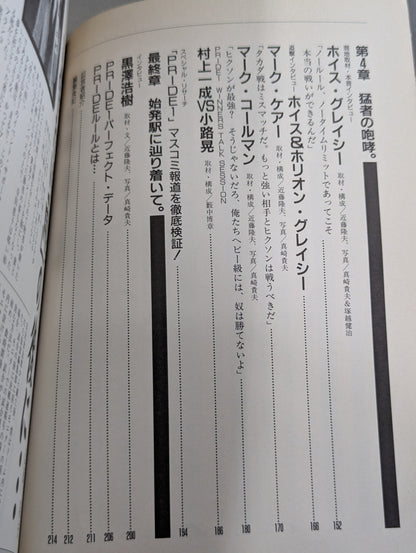 第4章 猛者の咆哮。
現地取材・本音インタビュー
ホイス・グレイシー 取材・構成/近藤隆夫、写真/真崎貴夫&塚越健治 152
「ノールール、ノータイムリミットであってこそ
本当の戦いができるんだ」
追撃インタビュー ホイス&ホリオン・グレイシー 166
マーク・ケアー 取材・構成/近藤隆夫、写真/真崎貴夫 170
「タカダ戦はミスマッチだ。もっと強い相手とヒクソンは戦うべきだ」
マーク・コールマン 取材・構成/近藤隆夫、写真/真崎貴夫 180
「ヒクソンが最強? そうじゃないだろ、俺たちヘビー級には、奴は勝てないよ」
PRIDE1 WINNERS TALK SESSION
村上一成VS小路晃 取材・構成/藪中博章 186
スペシャル・リサーチ
「PRIDE1」マスコミ報道を徹底検証! 194
最終章 始発駅に辿り着いて。
インタビュー
黒澤浩樹 取材・文/近藤隆夫、写真/真崎貴夫 200
PRIDE1パーフェクト・データ 206
PRIDEルールとは… 211
212
214